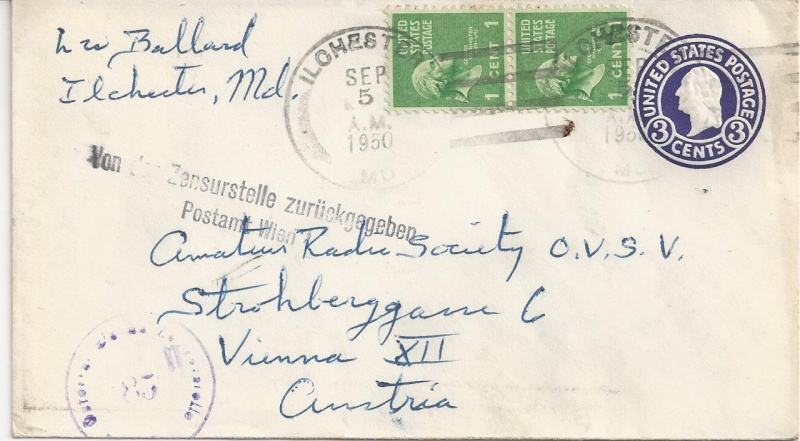 Ballard
Ilchester, Md.
ILCHESTER
SEP
5
A.M.
1950
MD
UNITED STATES
POSTAGE
1 CENT 1
UNITED STATES
POSTAGE
1 CENT 1
UNITED STATES POSTAGE
3 CENTS 3
Von der Zensurstelle zurückgegeben
Postamt Wien
Amateur Radio Society O.V.S.V.
Strohberggasse 6
Vienna XII
Austria